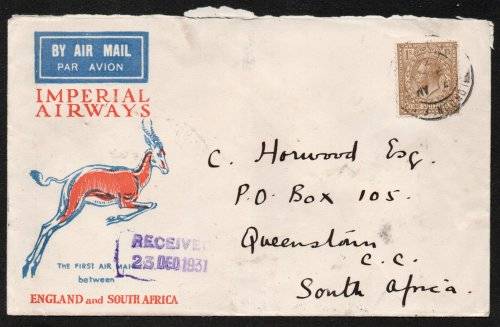 BY AIR MAIL
PAR AVION
IMPERIAL
AIRWAYS
C. Horwood Esq.
P.O. Box 105.
Queenstown
C.C.
South Africa.
RECEIVED
23 DEC 1931
THE FIRST AIR MAIL
between
ENGLAND and SOUTH AFRICA